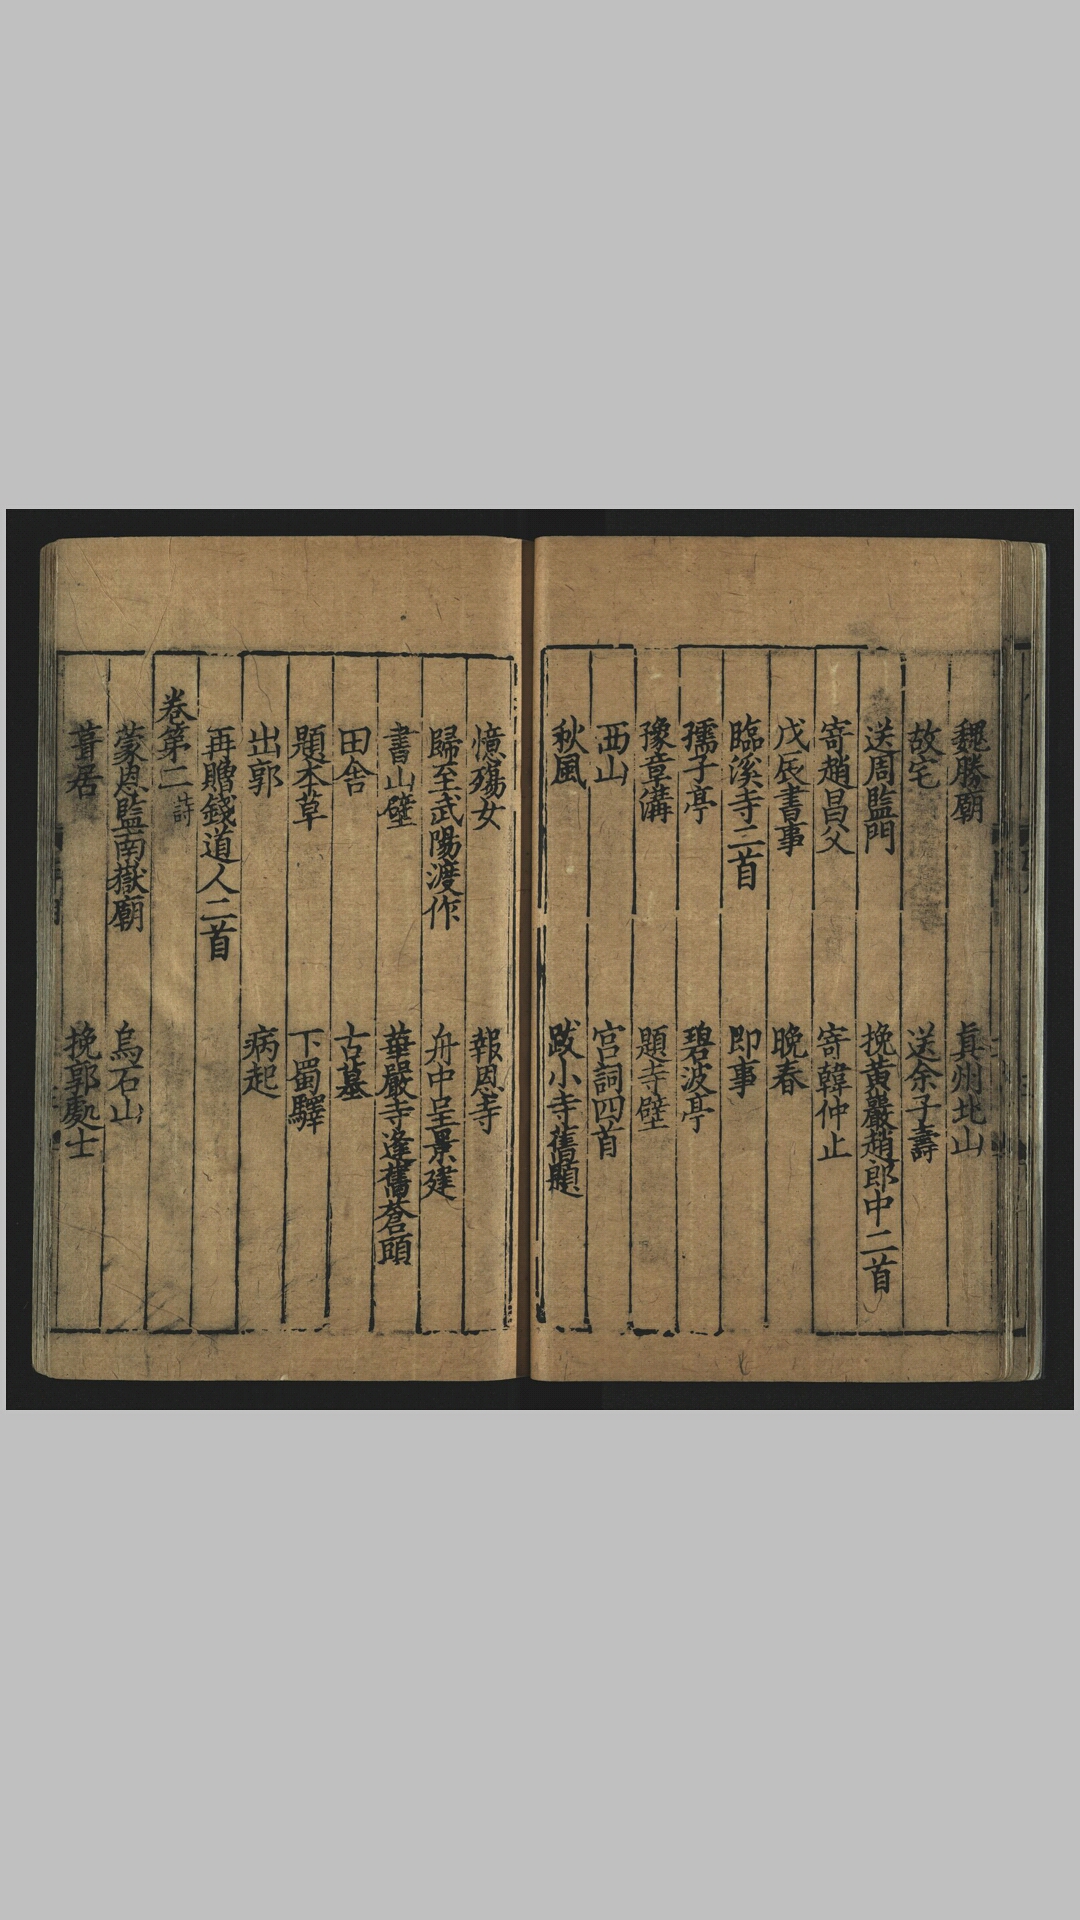 魏勝廟　真州北山
故宅　送余子壽
送周監門　挽黃巖趙郎中二首
寄趙昌父　寄韓仲止
戊辰書事　晚春
臨溪寺二首　即事
孺子亭　碧波亭
豫章溝　題寺壁
西山　宫詞四首
秋風　跋小寺舊題
憶殤女　報恩寺
歸至武陽渡作　舟中呈景建
書山壁　華嚴寺逢舊蒼頭
田舍　古墓
題本草　下蜀驛
出郭　病起
再贈錢道人二首
卷第二 詩
蒙恩監南嶽廟　烏石山
葺居　挽郭處士